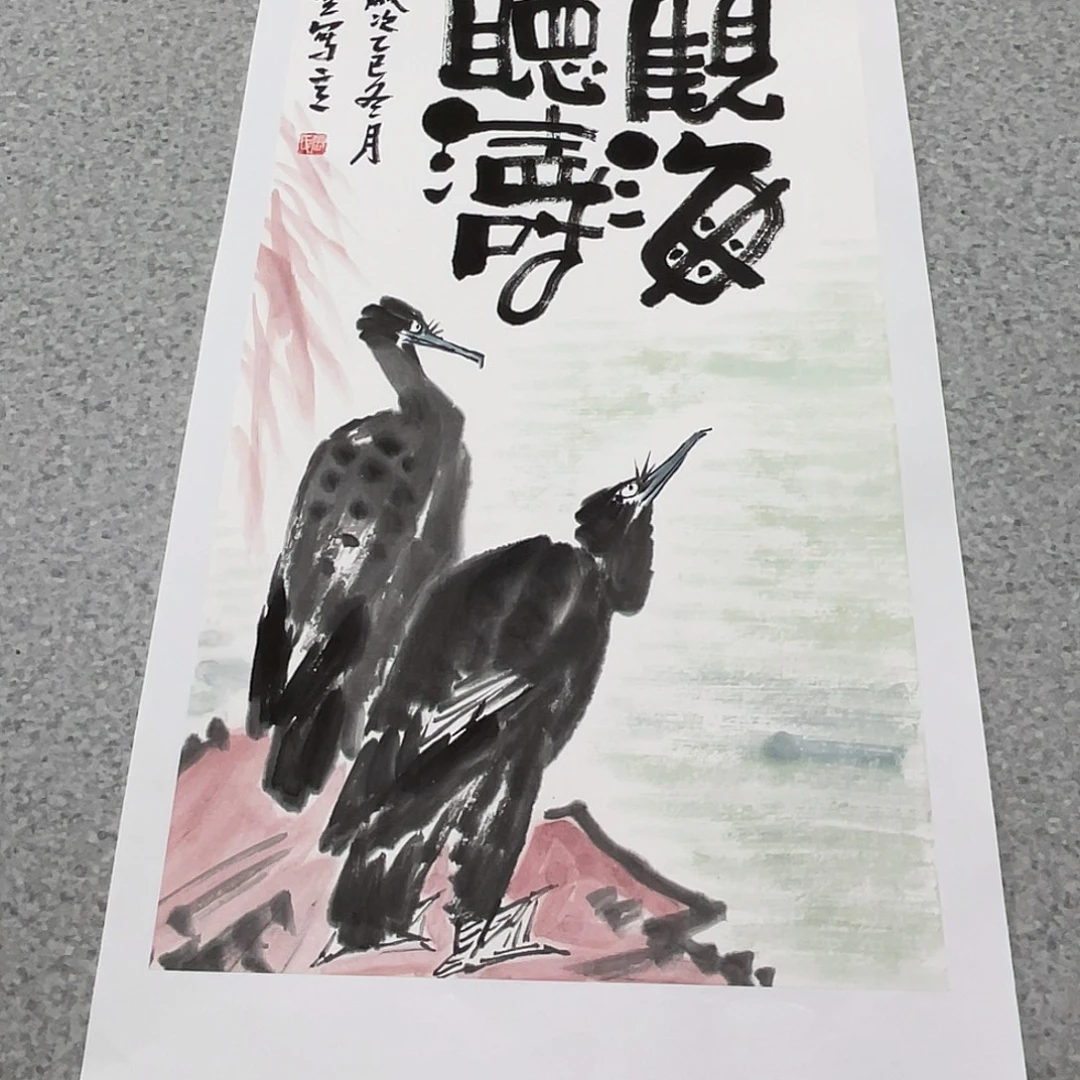 觀海
聽濤
歲次乙巳冬月